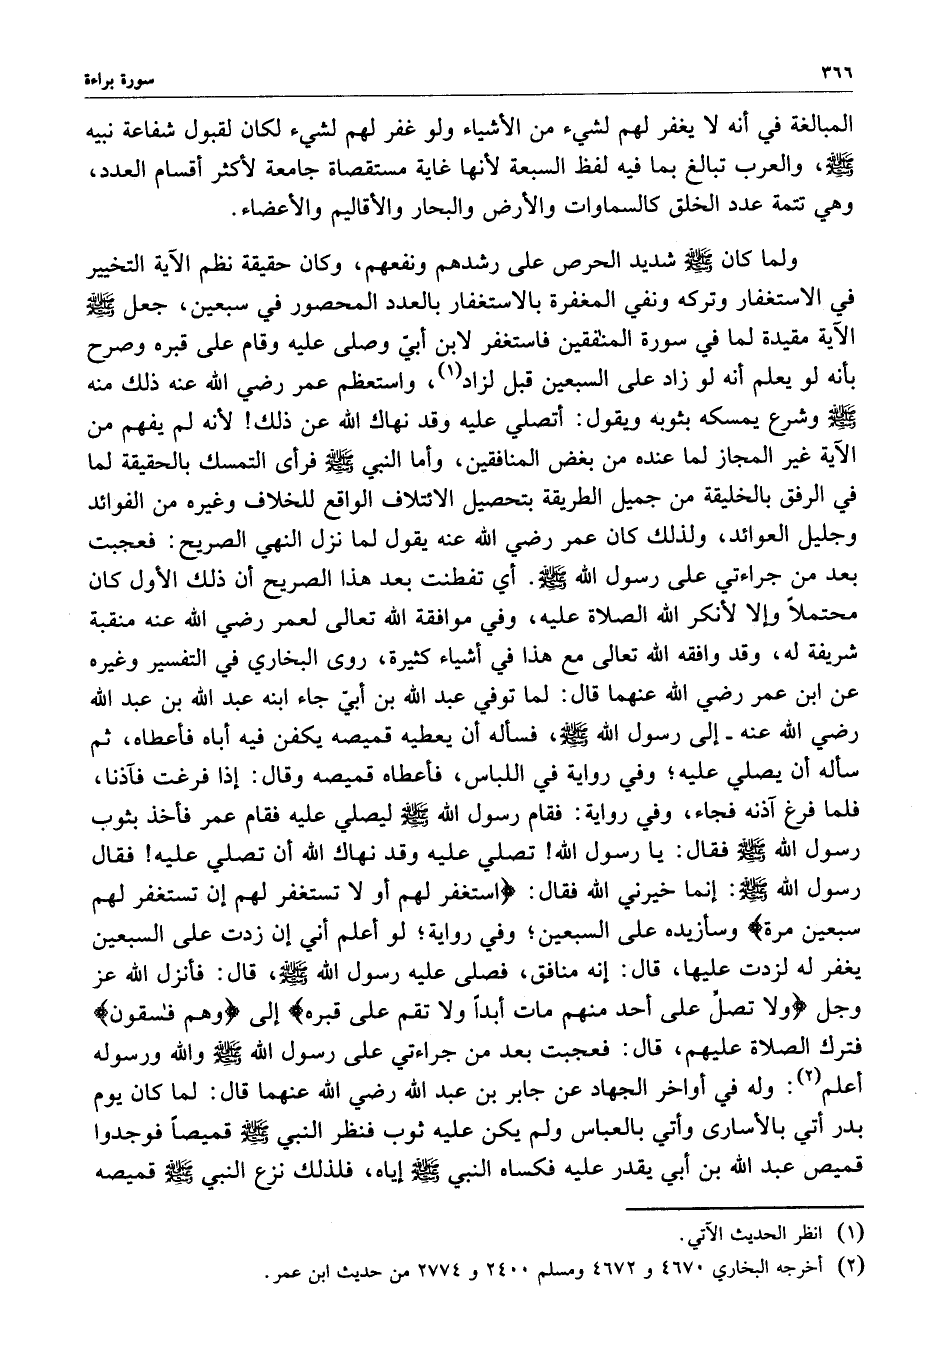 ٣٦٦
سورة براءة
المبالغة في أنه لا يغفر لهم لشيء من الأشياء ولو غفر لهم لشيء لكان لقبول شفاعة نبيه
ﷺ، والعرب تبالغ بما فيه لفظ السبعة لأنها غاية مستقصاة جامعة لأكثر أقسام العدد،
وهي تتمة عدد الخلق كالسماوات والأرض والبحار والأقاليم والأعضاء.
ولما كان ﷺ شديد الحرص على رشدهم ونفعهم، وكان حقيقة نظم الآية التخيير
في الاستغفار وتركه ونفي المغفرة بالاستغفار بالعدد المحصور في سبعين، جعل ﷺ
الآية مقيدة لما في سورة المنٰفقين فاستغفر لابن أبيّ وصلى عليه وقام على قبره وصرح
بأنه لو يعلم أنه لو زاد على السبعين قبل لزاد(١)، واستعظم عمر رضي الله عنه ذلك منه
ﷺ وشرع يمسكه بثوبه ويقول: أتصلي عليه وقد نهاك الله عن ذلك! لأنه لم يفهم من
الآية غير المجاز لما عنده من بغض المنافقين، وأما النبي ﷺ فرأى التمسك بالحقيقة لما
في الرفق بالخليقة من جميل الطريقة بتحصيل الائتلاف الواقع للخلاف وغيره من الفوائد
وجليل العوائد، ولذلك كان عمر رضي الله عنه يقول لما نزل النهي الصريح: فعجبت
بعد من جراءتي على رسول الله ﷺ. أي تفطنت بعد هذا الصريح أن ذلك الأول كان
محتملاً وإلا لأنكر الله الصلاة عليه، وفي موافقة الله تعالى لعمر رضي الله عنه منقبة
شريفة له، وقد وافقه الله تعالى مع هذا في أشياء كثيرة، روى البخاري في التفسير وغيره
عن ابن عمر رضي الله عنهما قال: لما توفي عبد الله بن أبيّ جاء ابنه عبد الله بن عبد الله
رضي الله عنه - إلى رسول الله ﷺ، فسأله أن يعطيه قميصه يكفن فيه أباه فأعطاه، ثم
سأله أن يصلي عليه؛ وفي رواية في اللباس، فأعطاه قميصه وقال: إذا فرغت فآذنا،
فلما فرغ آذنه فجاء، وفي رواية: فقام رسول الله ﷺ ليصلي عليه فقام عمر فأخذ بثوب
رسول الله ﷺ فقال: يا رسول الله! تصلي عليه وقد نهاك الله أن تصلي عليه! فقال
رسول الله ﷺ: إنما خيرني الله فقال: ﴿استغفر لهم أو لا تستغفر لهم إن تستغفر لهم
سبعين مرة﴾ وسأزيده على السبعين؛ وفي رواية؛ لو أعلم أني إن زدت على السبعين
يغفر له لزدت عليها، قال: إنه منافق، فصلى عليه رسول الله ﷺ، قال: فأنزل الله عز
وجل ﴿ولا تصلِّ على أحد منهم مات أبداً ولا تقم على قبره﴾ إلى ﴿وهم فٰسقون﴾
فترك الصلاة عليهم، قال: فعجبت بعد من جراءتي على رسول الله ﷺ والله ورسوله
أعلم(٢): وله في أواخر الجهاد عن جابر بن عبد الله رضي الله عنهما قال: لما كان يوم
بدر أتي بالأسارى وأتي بالعباس ولم يكن عليه ثوب فنظر النبي ﷺ قميصاً فوجدوا
قميص عبد الله بن أبي يقدر عليه فكساه النبي ﷺ إياه، فلذلك نزع النبي ﷺ قميصه
(١) انظر الحديث الآتي.
(٢) أخرجه البخاري ٤٦٧٠ و ٤٦٧٢ ومسلم ٢٤٠٠ و ٢٧٧٤ من حديث ابن عمر.